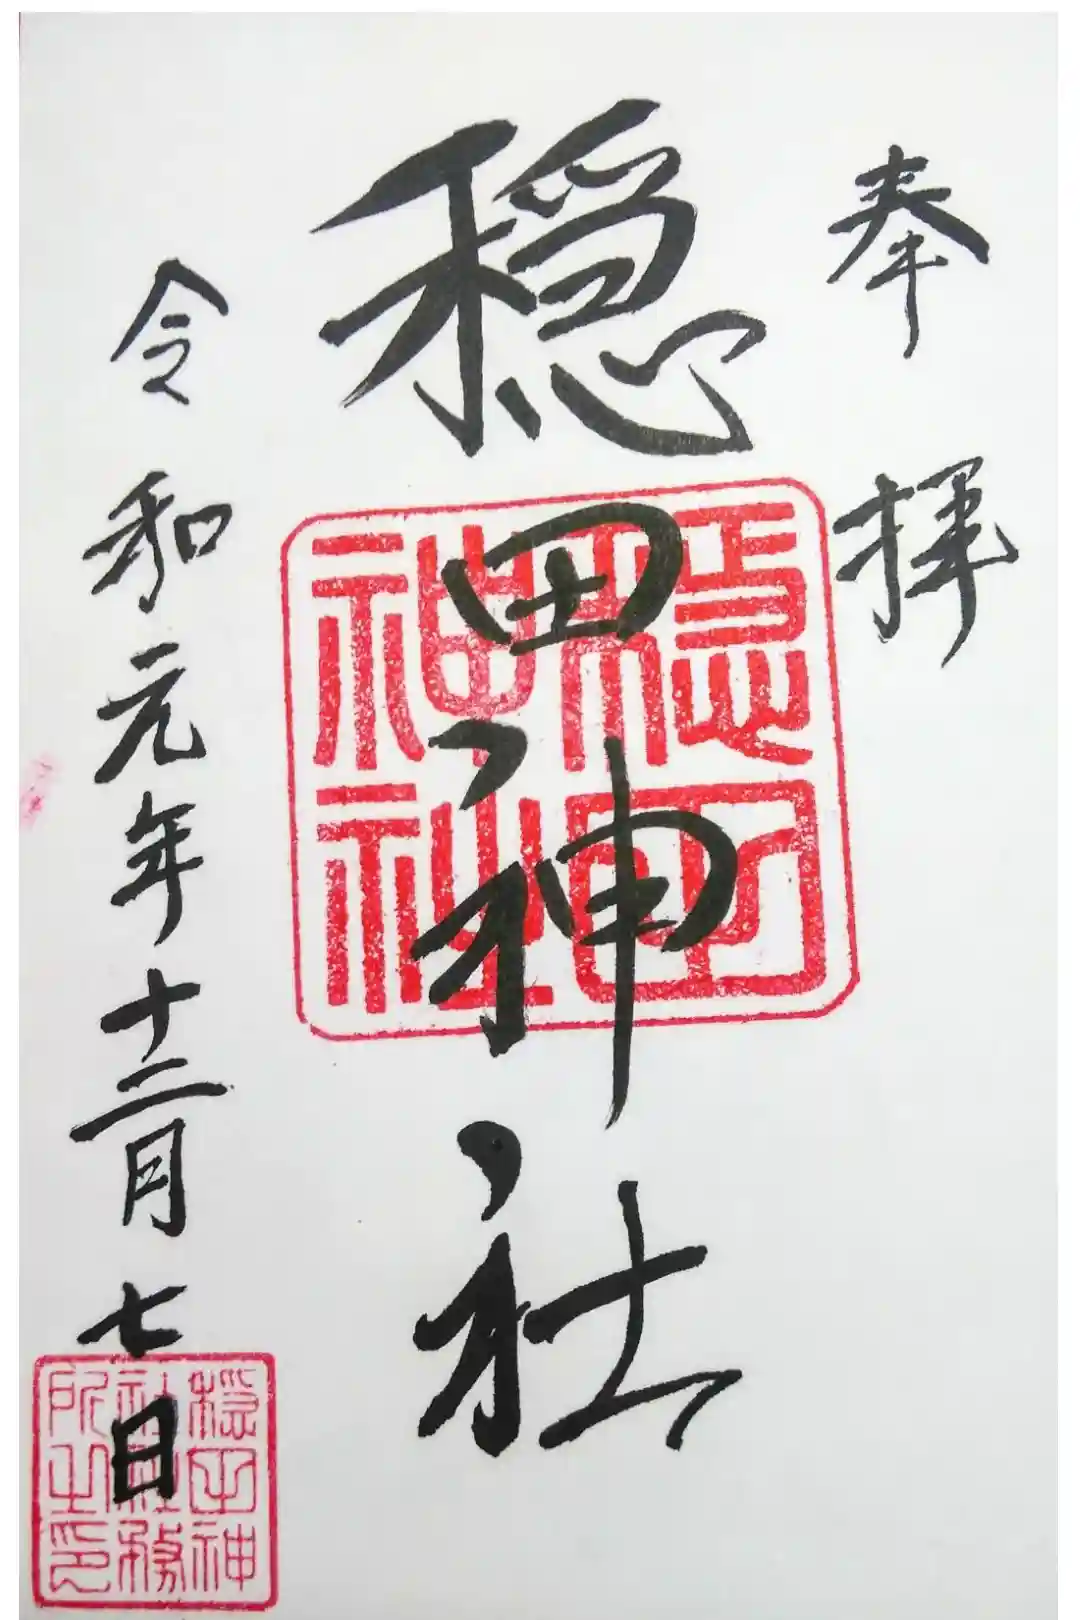 奉拝
穏田神社
令和元年十二月七日
穏田神社
穏田神社社務所之印